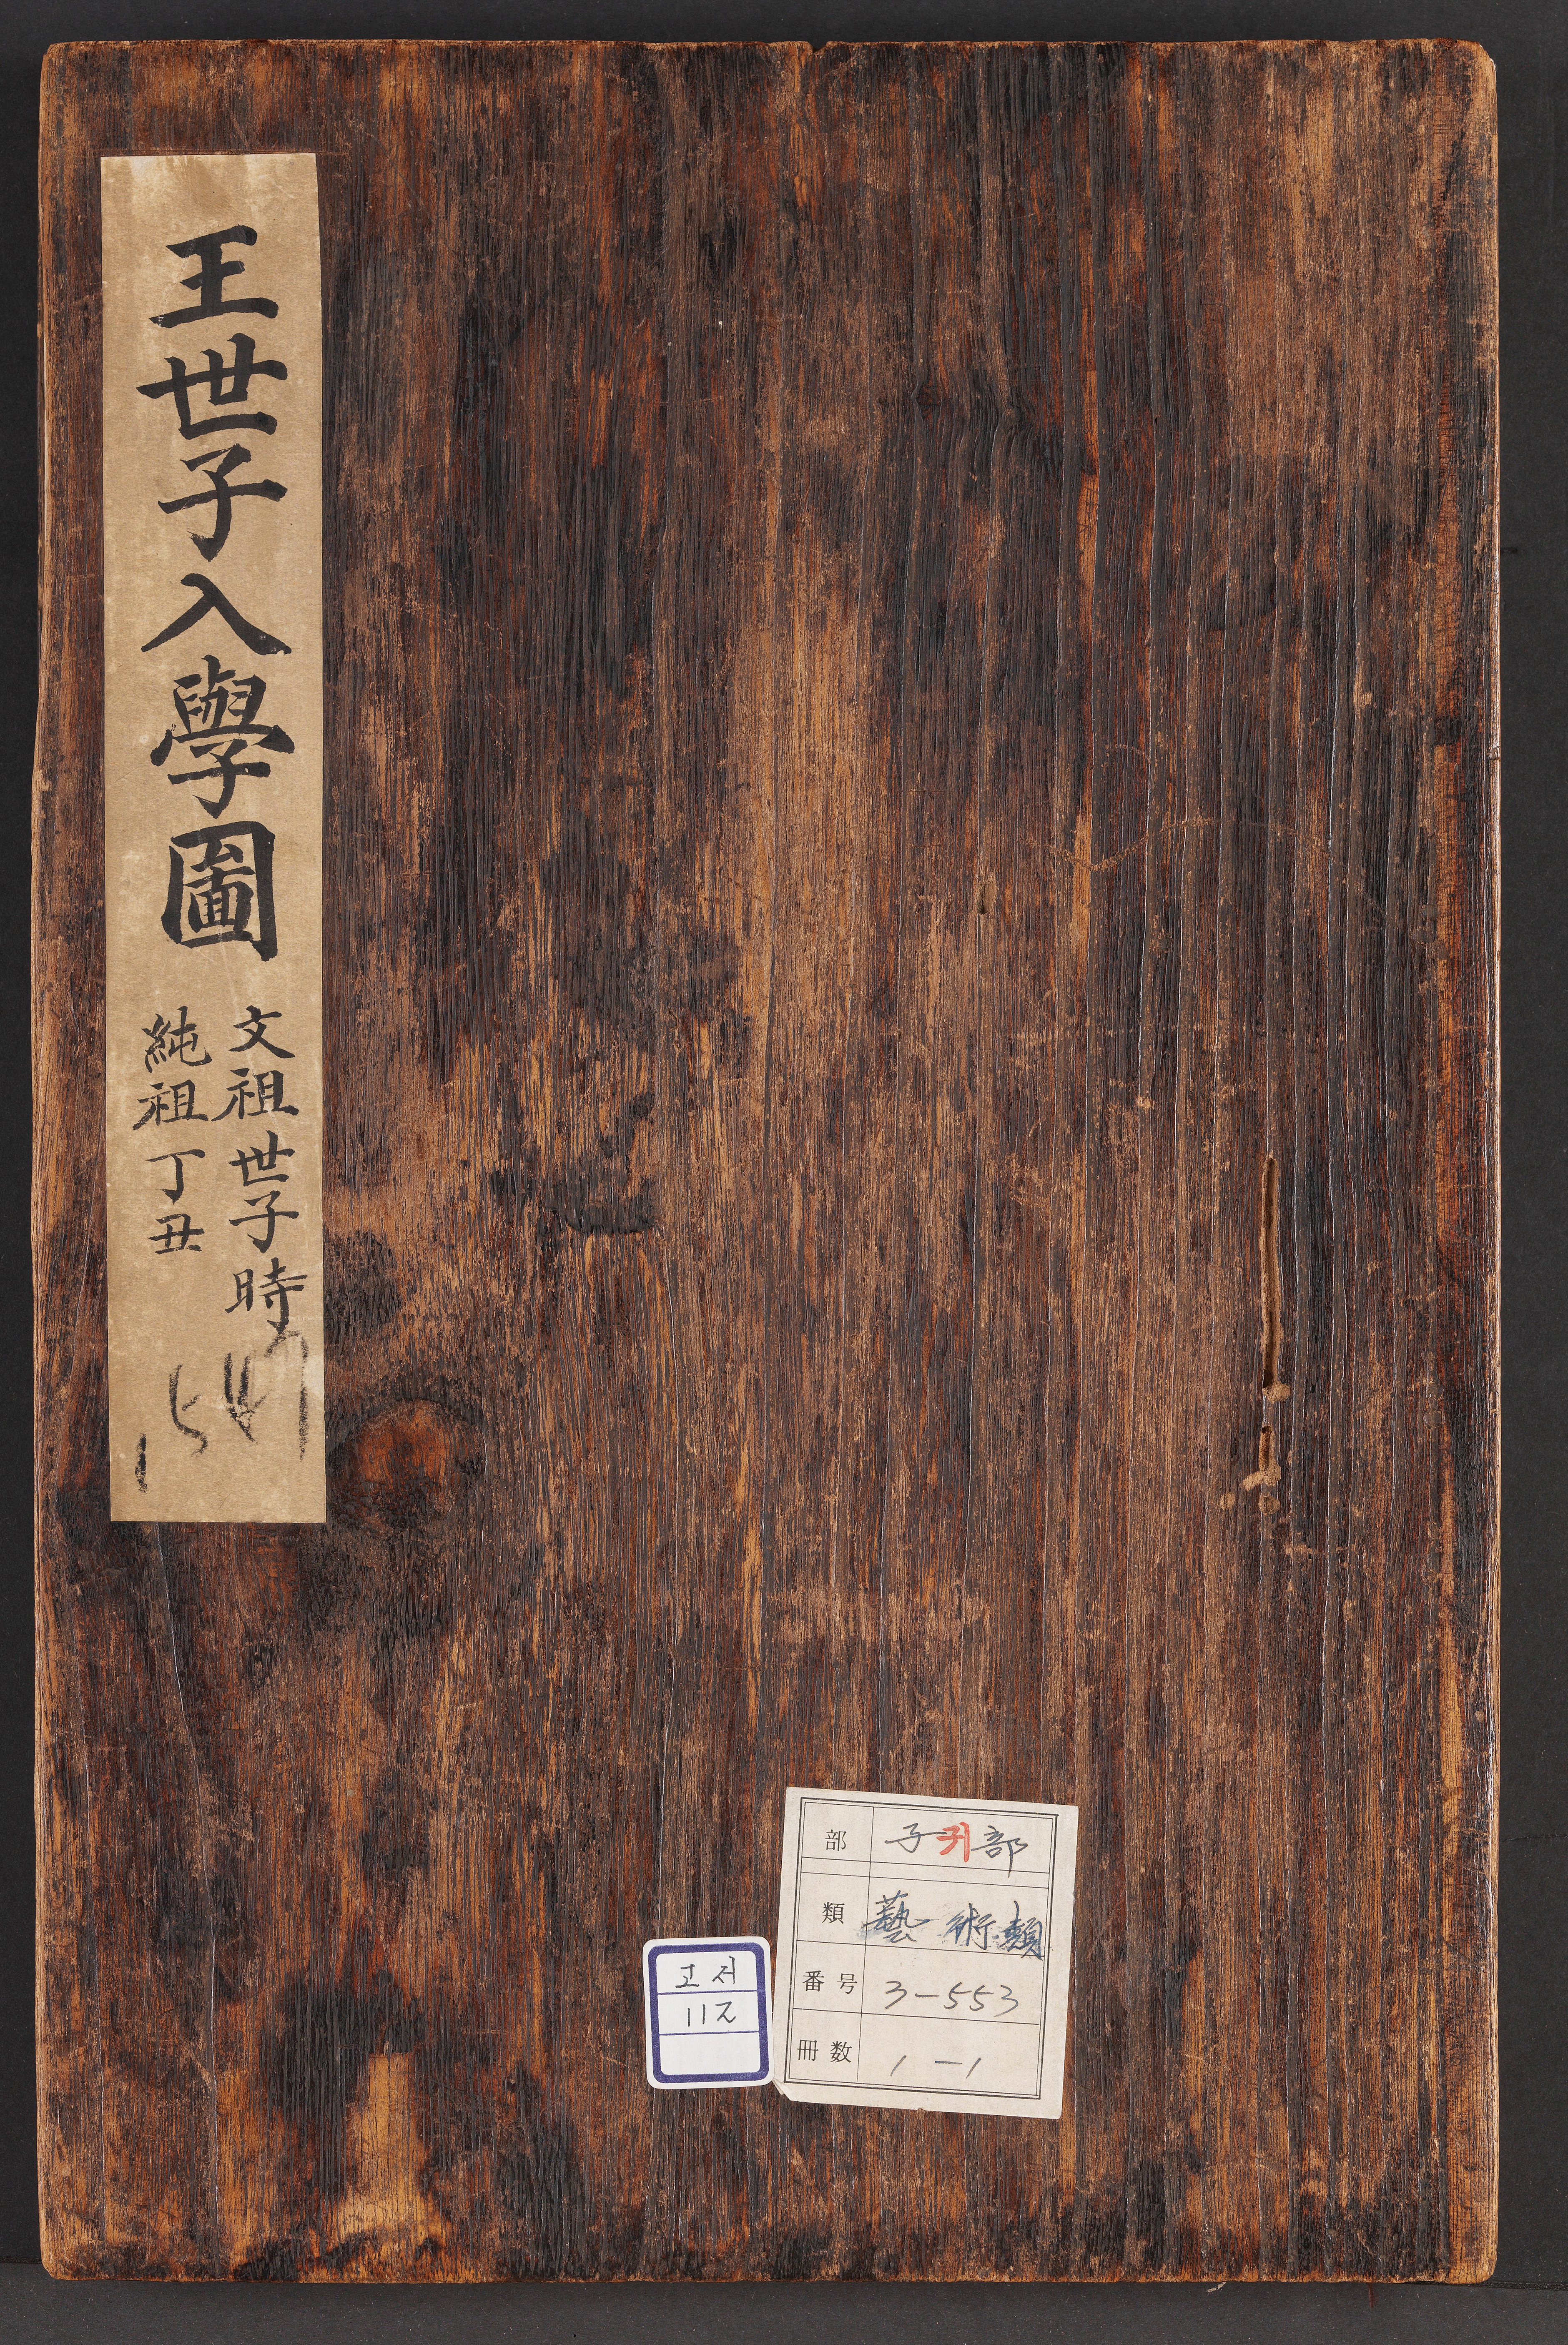 王世子入學圖
文祖世子時
純祖丁丑
部 子 귀 部
類 藝術類
番号 3-553
冊数 1-1
고저